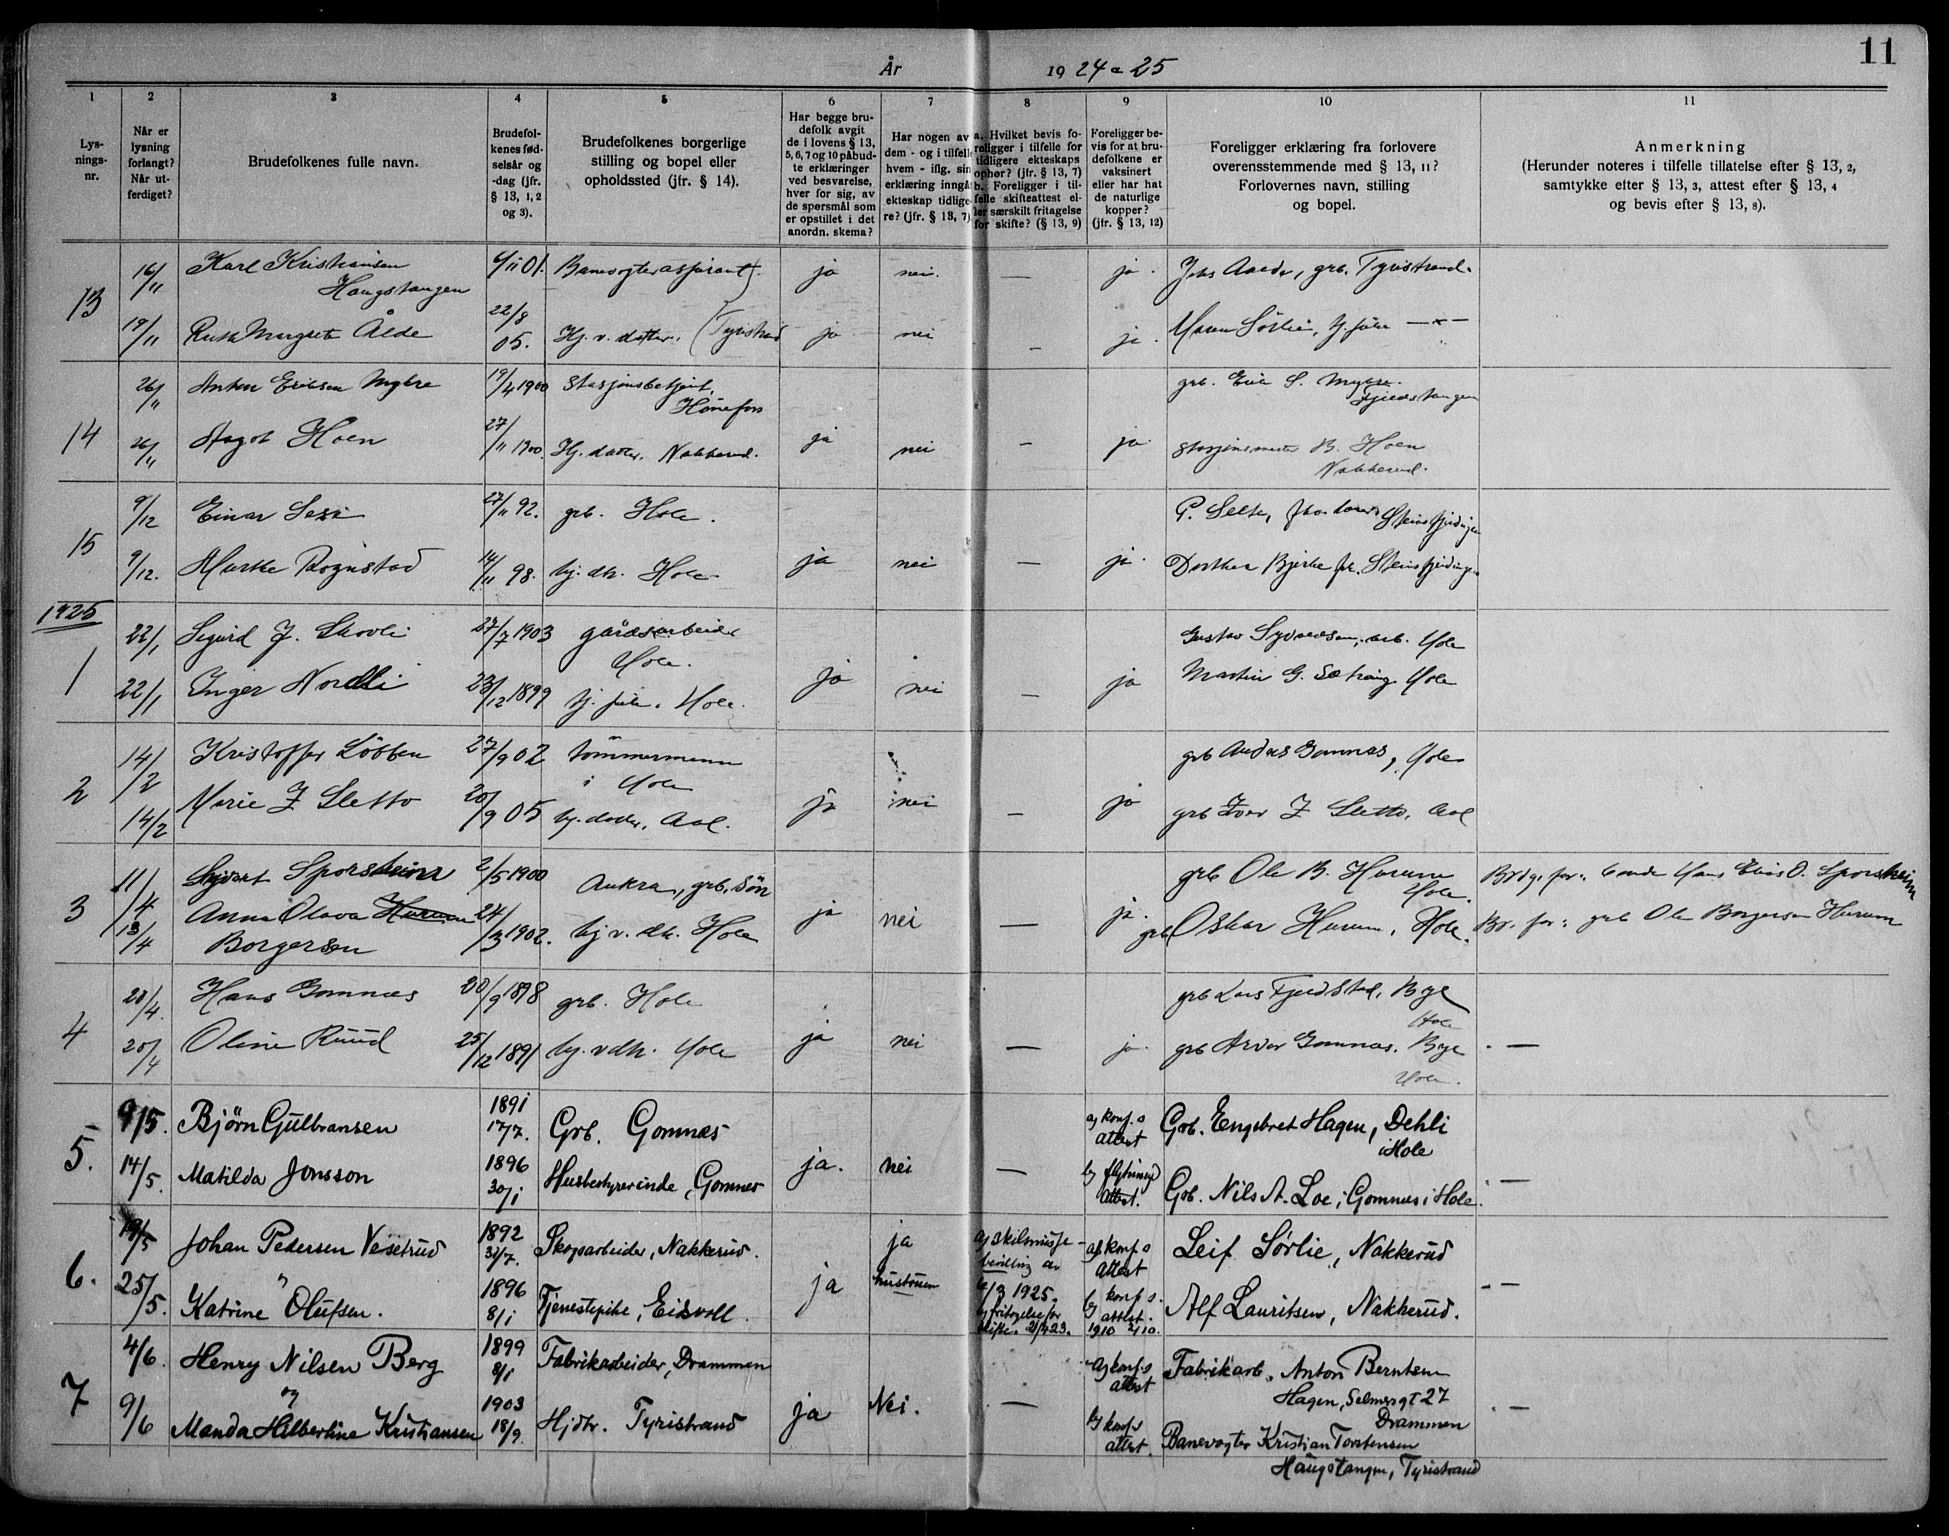 11
År 1924 - 25
1 2 3 4 5 6 7 8 9 10 11
Lys-
nings-
nr.
Når er
lysning
forlangt?
Når ut-
ferdiget?
Brudefolkenes fulle navn.
Brudefol-
kenes fød-
selsår og
-dag (jfr.
§ 13, 1, 2
og 3).
Brudefolkenes borgerlige
stilling og bopel eller
opholdssted (jfr. § 14).
Har begge bru-
defolk avgit
de i lovens § 13,
5, 6, 7 og 10 påbud-
te erklæringer
ved besvarelse,
hver for sig, av
de spørsmål som
er opstillet i det
anordn. skema?
Har nogen av
dem - og i tilfelle
hvem - iflg. sin
erklæring inngåt
ekteskap tidlige-
re? (jfr. § 13, 7).
a. Hvilket bevis fo-
religger i tilfelle for
tidligere ekteskaps
ophør? (jfr. § 13, 7)
b. Foreligger i til-
felle skifteattest el-
ler særskilt fritagelse
for skifte? (§ 13, 9)
Foreligger be-
vis for at bru-
defolkene er
vaksinert
eller har hat
de naturlige
kopper?
(jfr. § 13, 12)
Foreligger erklæring fra forlovere
overensstemmende med § 13, 11?
Forlovernes navn, stilling
og bopel.
Anmerkning
(Herunder noteres i tilfelle tillatelse efter § 13, 2,
samtykke efter § 13, 3, attest efter § 13, 4
og bevis efter § 13, 8).
13
16/11 Karl Kristiansen 6/11 01. Banevogteraspirant ja nei. — ja. grb. Tyristrand.
Haugstangen
19/11 Ruth Margrete Ålde 22/8 05. Hj. v. datter. Tyristrand ja nei — ja. Maren Sørlie, —"—
14
26/11 Anton Eriksen Myhre 19/4 1900 Stasjonsbetjent, grb. Erik S. Myhre.
Hönefos
26/11 Aagot Hoen 27/11 1900. Hj. datter, Nakkerud. ja nei — ja. Stasjonsmester B. Hoen
Nakkerud.
15
9/12 Einar 27/11 92. grb. Hole.
9/12. Marthe Rognstad 14/11 98. hj. dtr. Hole. ja nei — ja. Dorthea Bjerke
1925
1
22/1 Sigurd J. Skovli 27/7 1903 gårdsarbeider Gustav Syversen, arb. Hole
Hole.
22/1 Inger Nordli 23/12 1899 Hole. ja nei — ja Martin G. Sætrang Hole
2
14/2 Kristoffer Løbben 27/9 02 tömmermann grb Anders Gomnæs, Hole
i Hole
14/2 Marie I Sletto 20/9 05 hj. datter, Aal. ja nei — ja grb Iver I Sletto, Aal
3
11/4 Syvert Sporsheim 2/5 1900 Aukra, grb. sön grb Ole B. Hurum Brdg. far: bonde Hans Elias O. Sporsheim
Hole.
13/4 Anna Olava Hurum 24/3 1902. hj v. dtr. Hole ja nei — ja. grb Oskar Hurum, Hole. Br. far: grb Ole Borgersen Hurum
Borgersen
4
20/4 Hans Gomnæs 20/9 1898 grb. Hole grb Lars Fjeldstad, Bye
Hole
20/4 Oline Ruud 25/12 1891 hj. v dtr. Hole ja nei — ja. grb Arvor Gomnæs. Bye —
Hole.
5.
9/5. Björn Gulbransen 1891 17/7. Grb. Gomnæs a) konf.s attest Grb. Engebret Hagen, Dehli
i Hole
14/5. Matilda Jonsson 1896 30/1 Husbestyrerinde, Gomnes ja. nei — b) flytnings attest. Grb. Nils A. Loe, Gomnæs i Hole. —
6.
19/5 Johan Pedersen Vesetrud 1892 31/7. Skogsarbeider, Nakkerud. ja a) skilsmisse- bevilling av a) konf.s attest Leif Sørlie, Nakkerud
25/5. Katrine Olufsen. 1896 8/1 Tjenestepike, Eidsvoll. ja hustruen 1925. b) fritagelse for skifte. b) konf.s. attest. 1910 2/10. Alf Lauritsen, Nakkerud. —
7
4/6. Henry Nilsen Berg 1899 8/1 Fabrikarbeider, Drammen a) konf.s attest Fabrikarb. Anton Berntsen
og Hagen, Selmersgt 27
Drammen
9/6 Manda Hilbertine Kristiansen 1903 18/9. Hjdtr. Tyristrand ja Nei. — b) konf.s attest. Banevogter Kristian Torstensen —
Haugstangen, Tyristrand